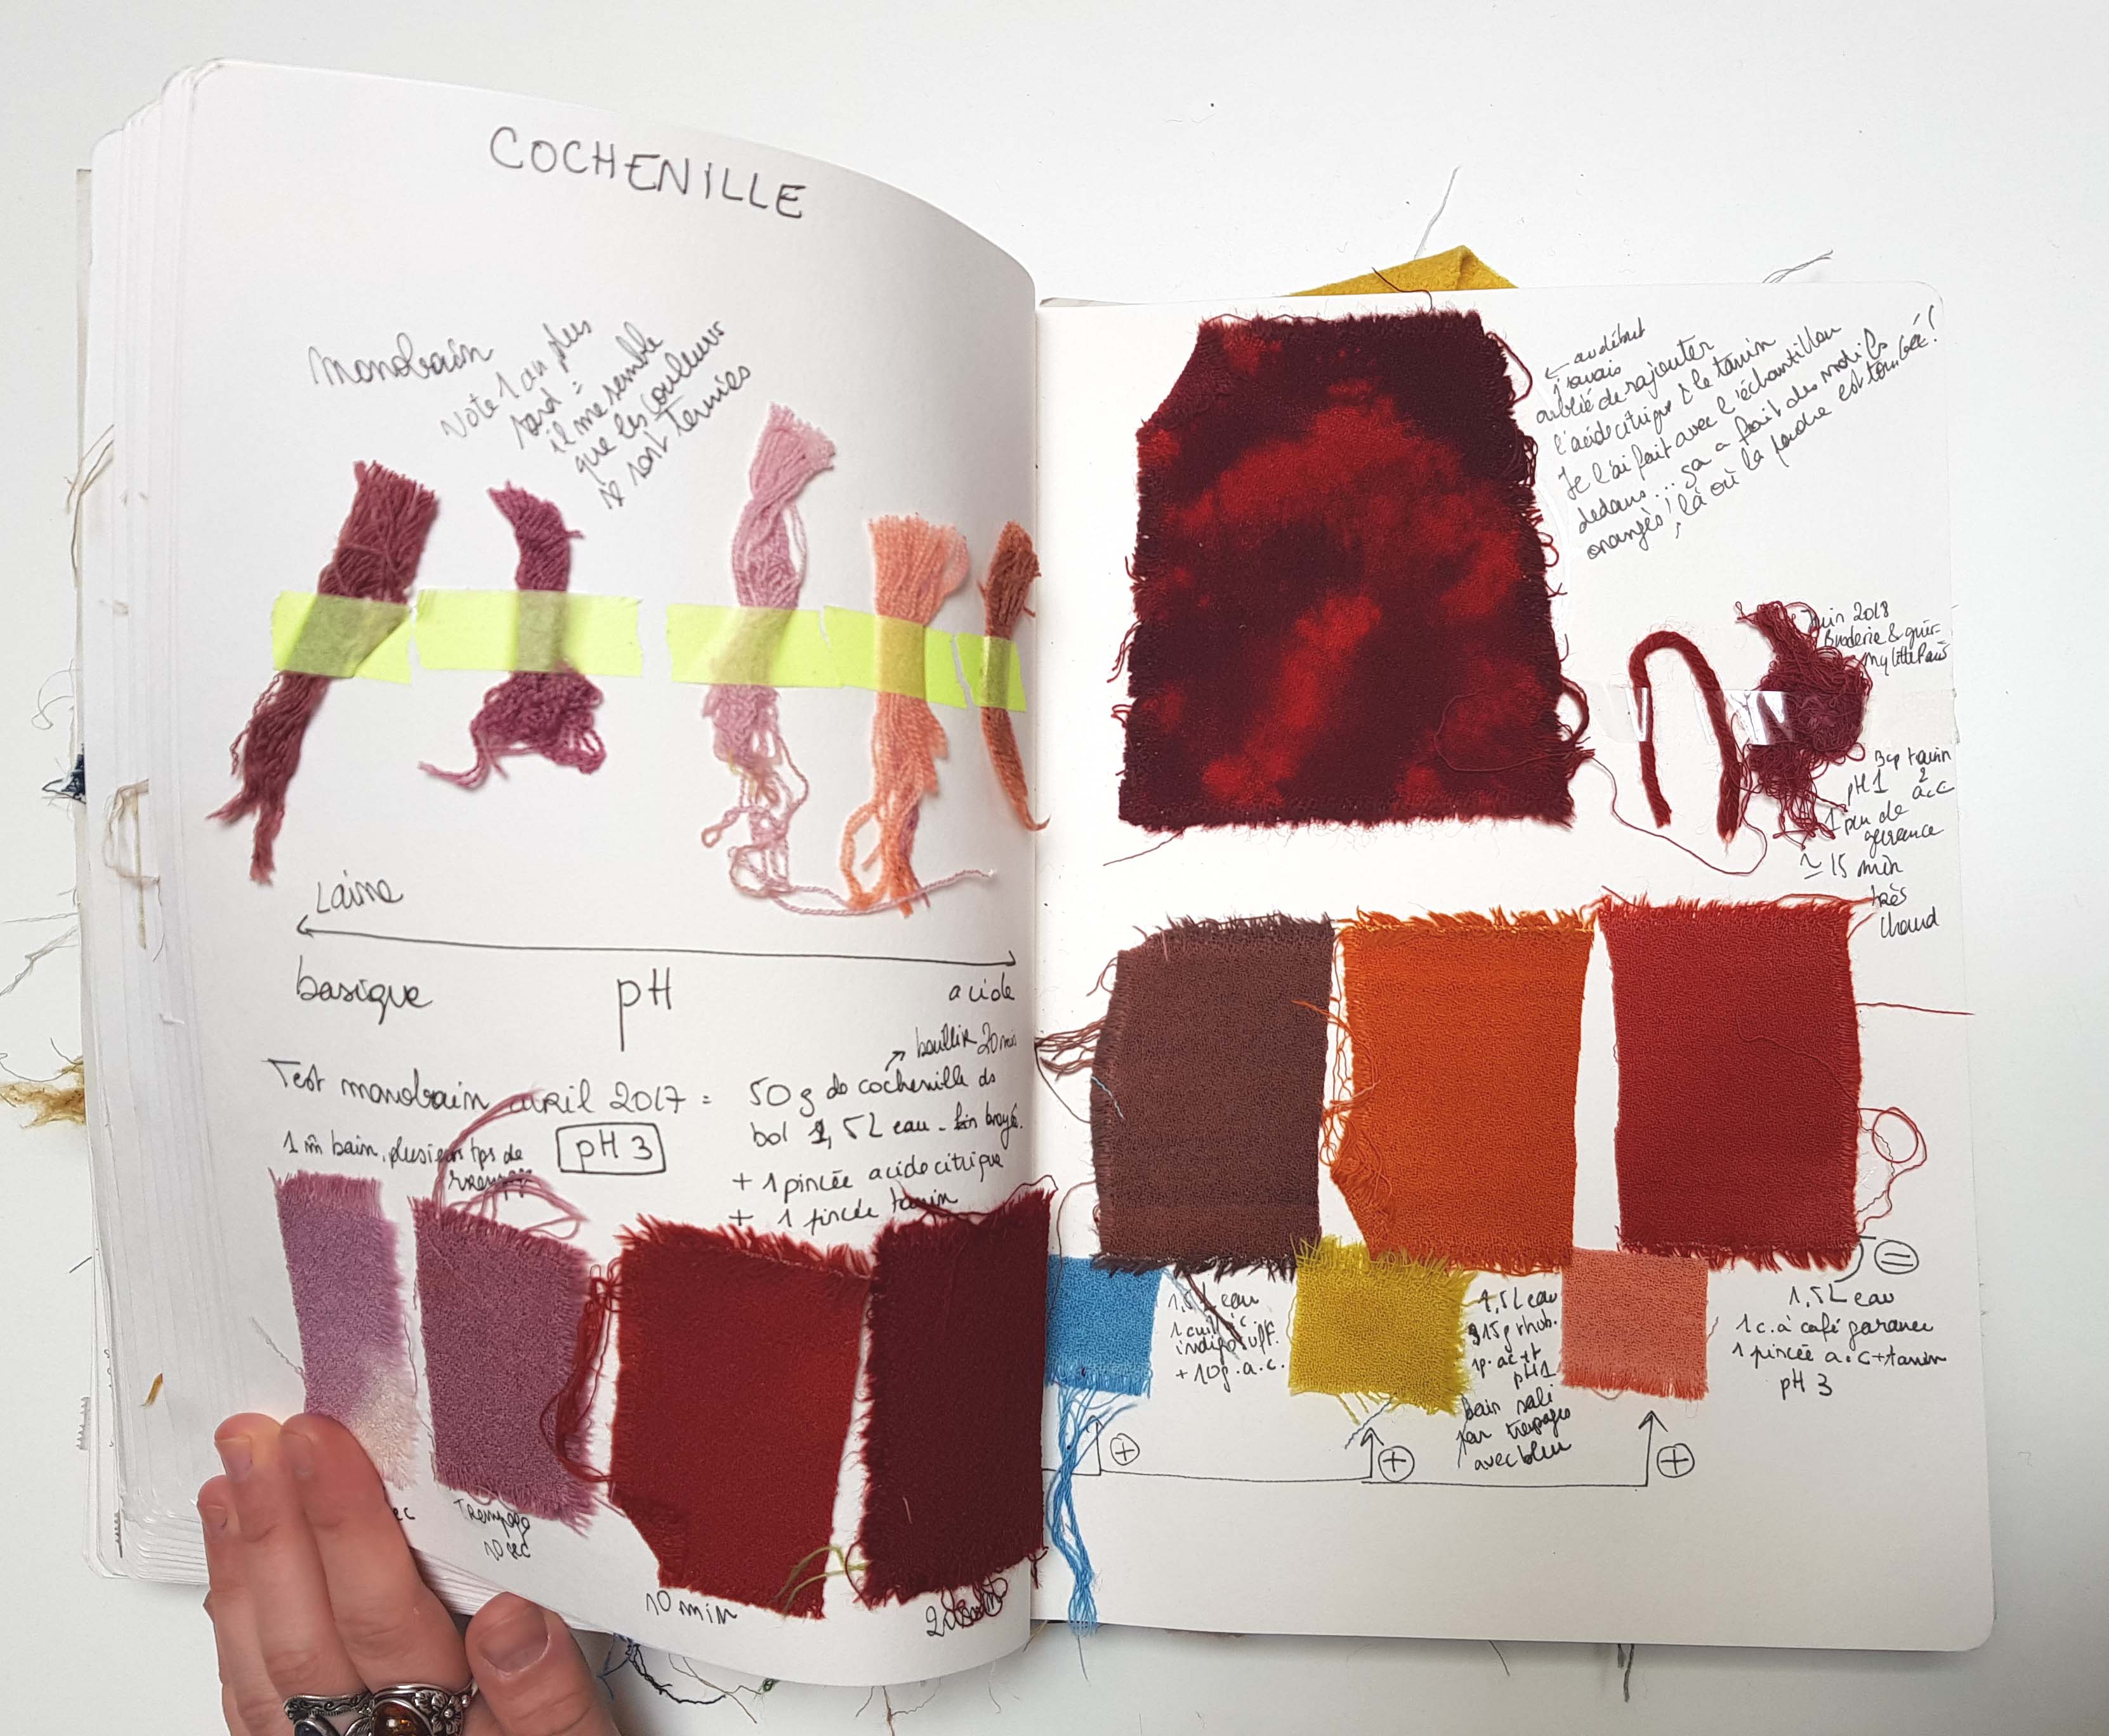 COCHENILLE
Monobain
Note 1 an plus
tard :
il me semble
que les couleurs
se sont ternies
Laine
basique pH acide
Test monobain avril 2017 =
1 m̂ bain, plusieurs tps de
trempage
pH 3
bouillir 20 min
50 g de cochenille ds
bol 1,5 L eau - bin broyé.
+ 1 pincée acide citrique
+ 1 pincée tanin
ec
Trempage
10 sec
10 min
← au début
j'avais
oublié de rajouter
l'acide citrique & le tanin
Je l'ai fait avec l'échantillon
dedans... ça a fait des motifs
orangés, là où la poudre est tombée !
Juin 2018
Broderie &
3 cp tanin
pH 1 & a.c
1 peu de
garance
≃ 15 min
très
chaud
=
1,5 L eau
1 cuil c.
indigo sulf.
+ 10g. a.c.
+
1,5 L eau
315g rhub.
1p. ac+t
pH1
bain sali
par trempages
avec bleu
+
1,5 L eau
1 c. à café garance
1 pincée a.c+tanin
pH 3
+